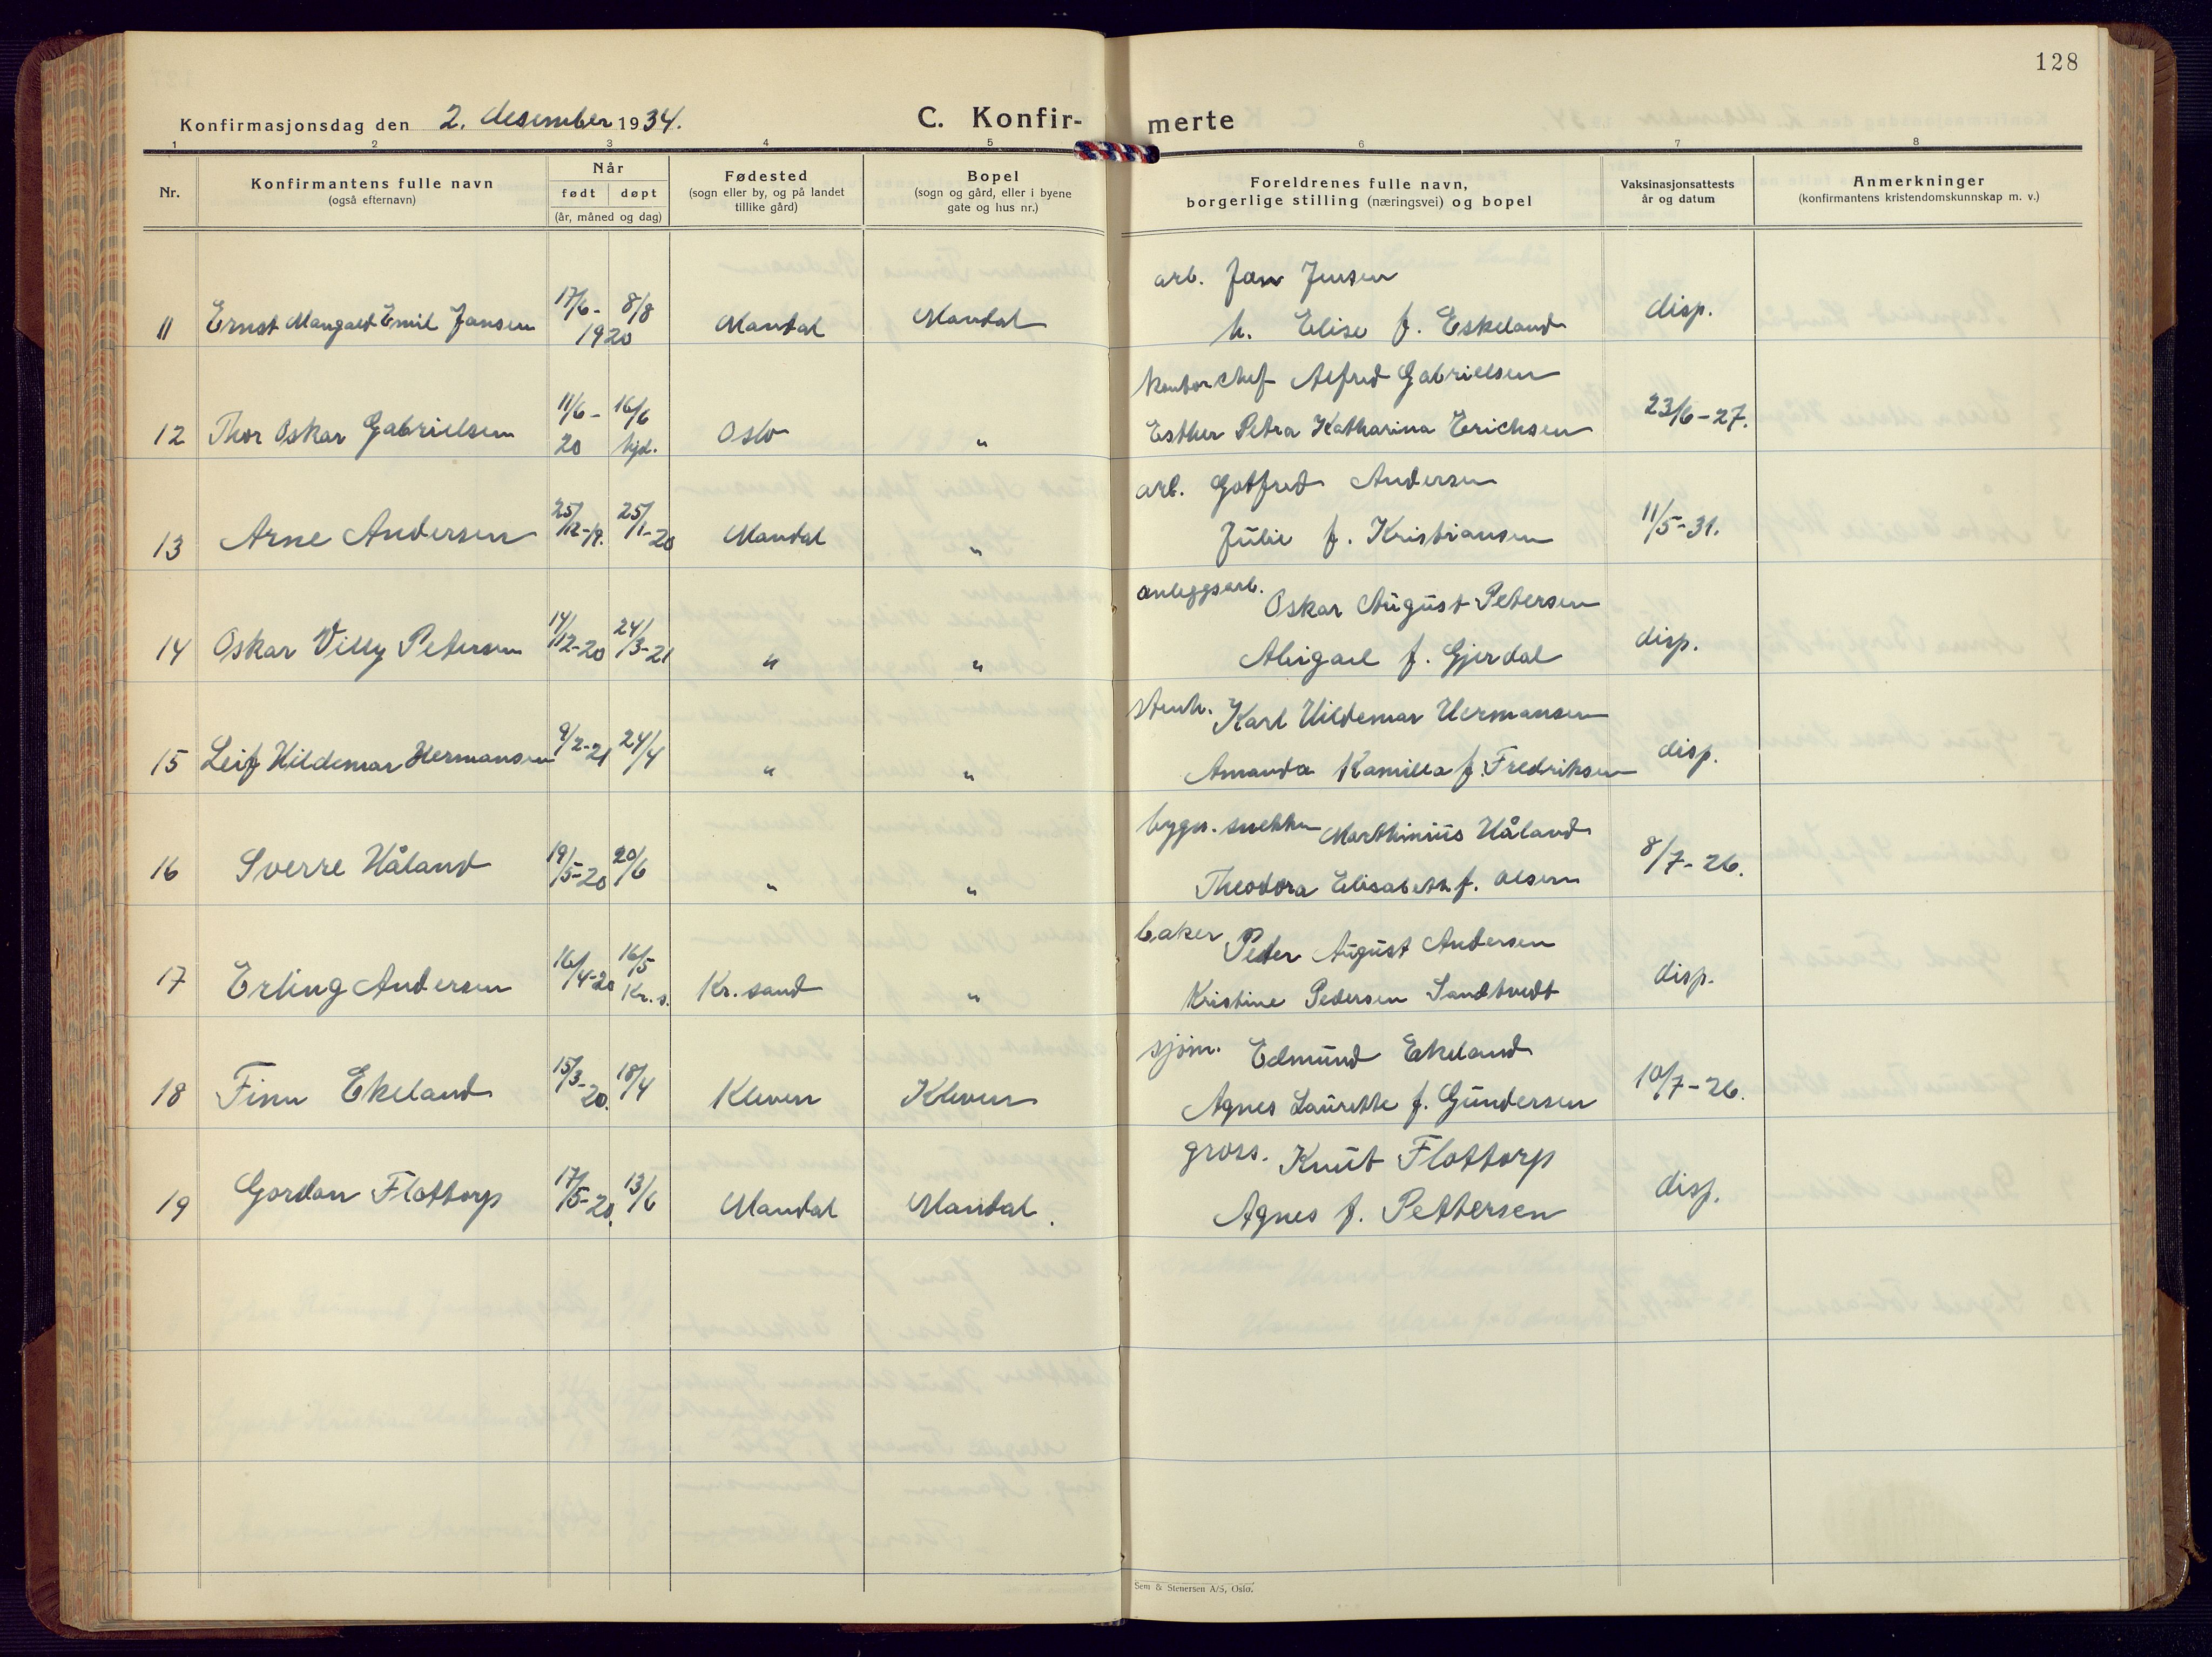 128
Konfirmasjonsdag den 2. desember 1934.
C. Konfir- merte
1 2 3 4 5 6 7 8
Nr.
Konfirmantens fulle navn
(også efternavn)
Når
født døpt
(år, måned og dag)
Fødested
(sogn eller by, og på landet
tillike gård)
Bopel
(sogn og gård, eller i byene
gate og hus nr.)
Foreldrenes fulle navn,
borgerlige stilling (næringsvei) og bopel
Vaksinasjonsattests
år og datum
Anmerkninger
(konfirmantens kristendomskunnskap m. v.)
arb. Jan Jensen
11 Ernst Mangald Emil Jansen 17/6- 8/8 1920 Mandal Mandal h. Elise f. Eskeland disp.
kontorchef Alfred Gabrielsen
12 Thor Oskar Gabrielsen 11/6- 20 16/6 hjd. Oslo " Esther Petra Katharina Erichsen 23/6-27.
arb. Gotfred Andersen
13 Arne Andersen 25/12-19. 25/1-20 Mandal " Julie f. Kristiansen 11/5-31.
anleggsarb. Oskar August Petersen
14 Oskar Villy Petersen 14/12-20 24/3-21 " " Abigael f. Gjerdal disp.
stenh. Karl Hildemar Hermansen
15 Leif Hildemar Hermansen 9/2-21 24/4 " " Amanda Kamilla f. Fredriksen disp.
bygn. snekker Marthinius Håland
16 Sverre Håland 19/5-20 20/6 " " Theodora Elisabeth f. Olsen 8/7-26.
baker Peder August Andersen
17 Erling Andersen 16/4-20 16/5 Kr.s. Kr. sand " Kristine Pedersen Sandtvedt disp.
sjøm. Edmund Ekeland
18 Finn Ekeland 15/3-20. 18/4 Kleven Kleven Agnes Laurette f. Gundersen 10/7-26.
gross. Knut Flottorp
19 Gordon Flottorp 17/5-20. 13/6 Mandal Mandal. Agnes f. Pettersen disp.
Sem & Stenersen A/S, Oslo.